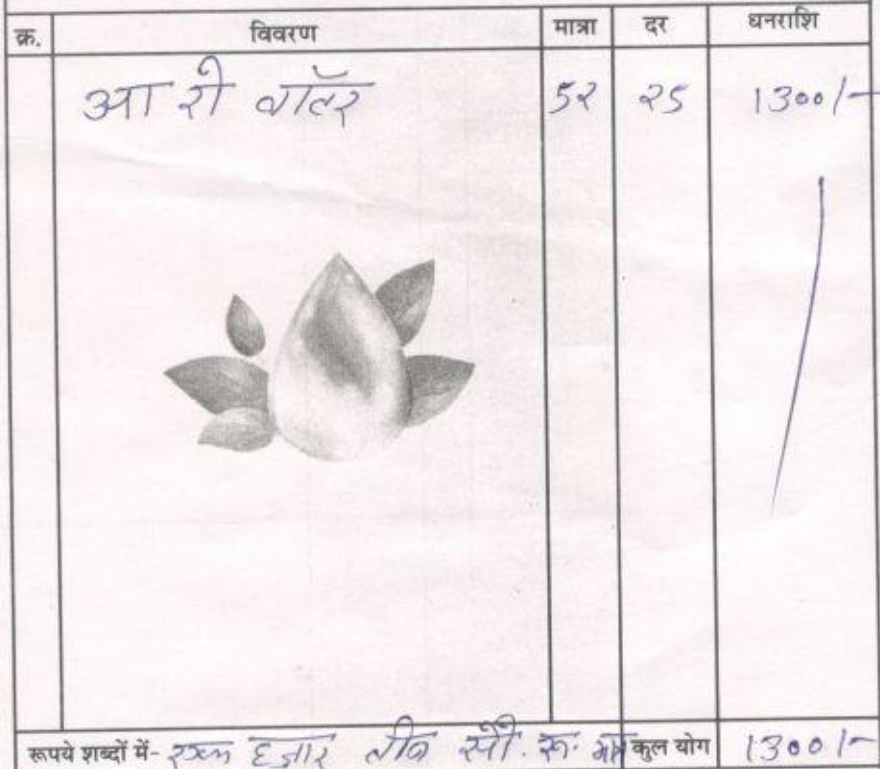 क्र. विवरण मात्रा दर धनराशि
आ रो वॉटर 52 25 1300/-
रूपये शब्दों में- एक हजार तीन सौ. रू. मात्र कुल योग 1300/-